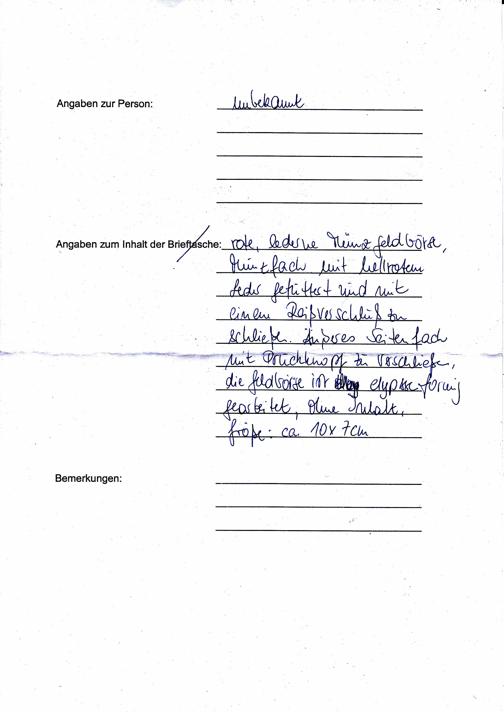 Angaben zur Person: unbekannt
Angaben zum Inhalt der Brieftasche: rote, lederne Münzgeldbörse,
Münzfach mit hellrotem
Leder gefüttert und mit
einem Reißverschluß zu
schließen. Äußeres Seitenfach
mit Druckknopf zu Verschließen,
die Geldbörse ist elypsenförmig
gearbeitet, Ohne Inhalt,
Größe: ca. 10x7cm
Bemerkungen: